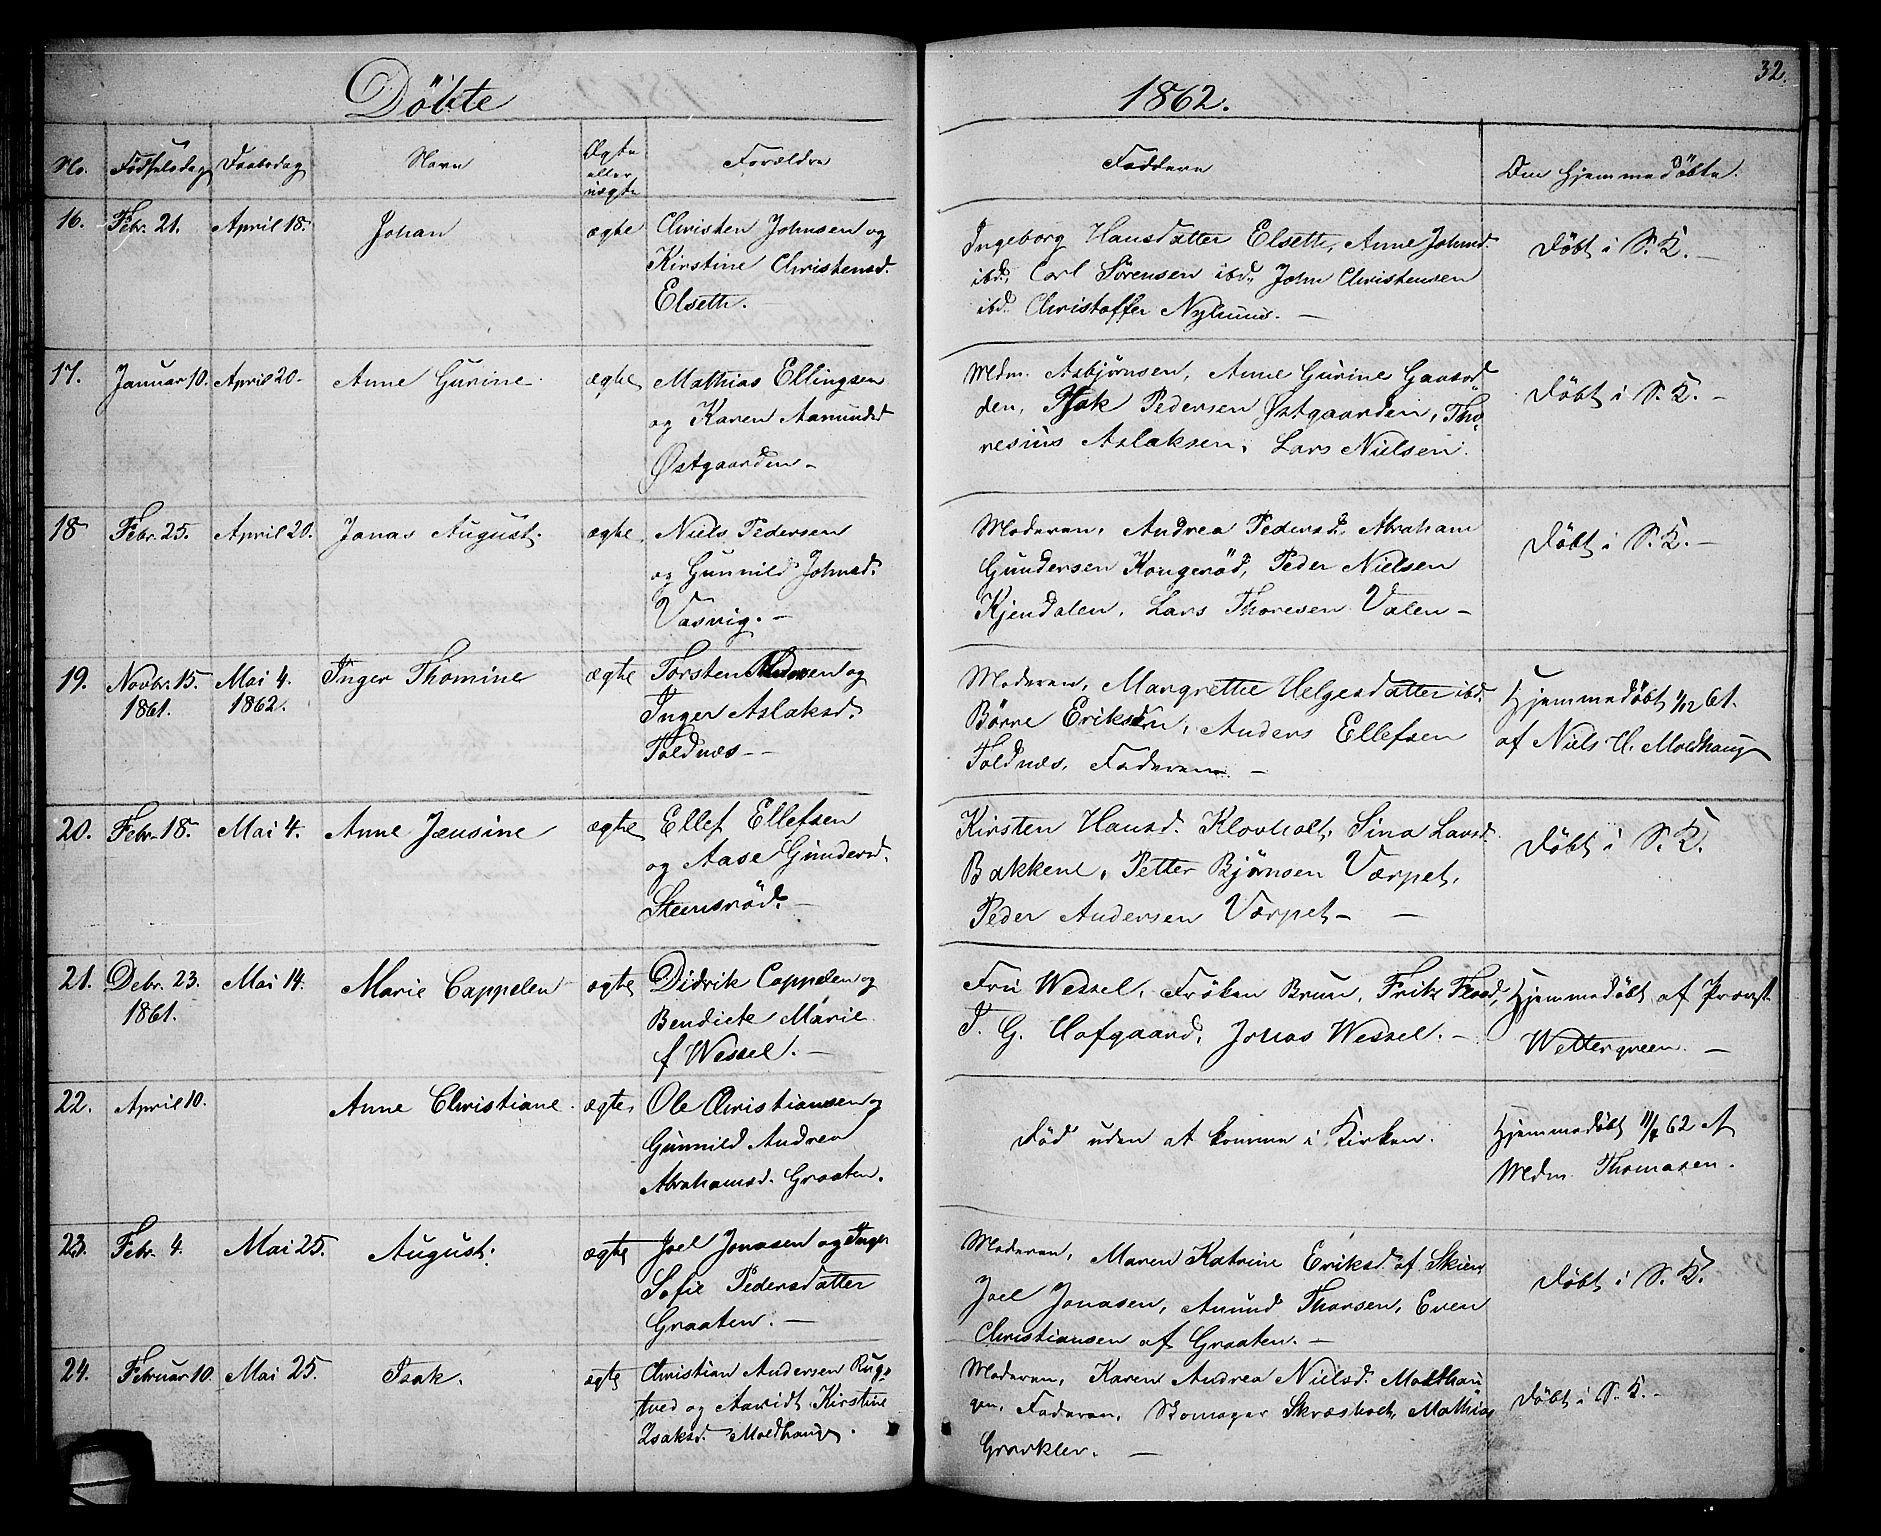 Döbte 1862. 32.
No. Födselsdag Daabsdag Navn Ægte eller uægte Forældre Faddere Om hjemmedöbte.
16. Febr. 21. April 18. Johan ægte Christen Johnsen og
Kirstine Christensd.
Elseth. —
Ingeborg Hansdatter Elseth, Anne Johnsd.
ibd., Carl Sörensen ibd., John Christensen
ibd. Christoffer Nylund. —
Döbt i S. K. —
17. Januar 10. April 20. Anne Gurine. ægte Mathias Ellingsen
og Karen Aamundsd
Østgaarden —
Mdm. Asbjørnsen, Anne Gurine
den, Isak Pedersen Østgaarden, Tho
resius Aslaksen, Lars Nielsen.
Döbt i S. K. —
18 Febr. 25. April 20. Jonas August. ægte Niels Pedersen
og Gunnild Johnsd.
Vasvig. —
Moderen, Andrea Pedersd., Abraham
Gundersen Kongeröd, Peder Nielsen
Kjendalen, Lars Thoresen Valen —
Döbt i S. K. —
19. Novbr. 15. 1861. Mai 4. 1862. Inger Thomine ægte Torsten og
Inger Aslaksd.
Toldnæs —
Moderen, Margrethe Helgesdatter ibd.
Börre Eriksen, Anders Ellefsen
Toldnæs, Faderen —
Hjemmedöbt 1/12 61.
af Niels H. Moldhaug
20. Febr. 18. Mai 4. Anne Jensine ægte Ellef Ellefsen
og Aase Gundersd.
Steensröd. —
Kirsten Hansd. Klovholt, Sina Larsd.
Bakkene, Petter Bjørnsen Værpet,
Peder Andersen Værpet — —
Döbt i S. K.
21. Debr. 23. 1861. Mai 14. Marie Cappelen ægte Didrik Cappelen og
Bendicte Marie
f Wessel. —
Fru Wessel, Fröken Brun, Frits Flood,
T. G. Hofgaard, Jonas Wessel. —
Hjemmedöbt af Provst
Wettergreen. —
22. April 10. Anne Christiane. ægte. Ole Christiansen og
Gunnild Andrea
Abrahamsd. Graaten.
Död uden at komme i Kirken.
Hjemmedöbt 11/4 62 af
Mdm. Thomasen.
23. Febr. 4. Mai 25. August. ægte Joel Jonasen og Inger
Sofie Pedersdatter
Graaten. —
Moderen, Maren Katrine Eriksd af Skien,
Joel Jonasen, Amund Thorsen, Even
Christiansen af Graaten. —
Döbt i S. K.
24. Februar 10. Mai 25. Isak. ægte Christian Andersen Rug-
tved og Kirstine
Isaksd. Moldhaug.
Moderen, Karen Andrea Nielsd. Moldhau
gen, Faderen, Skomager Mathias
—
Döbt i S. K. —